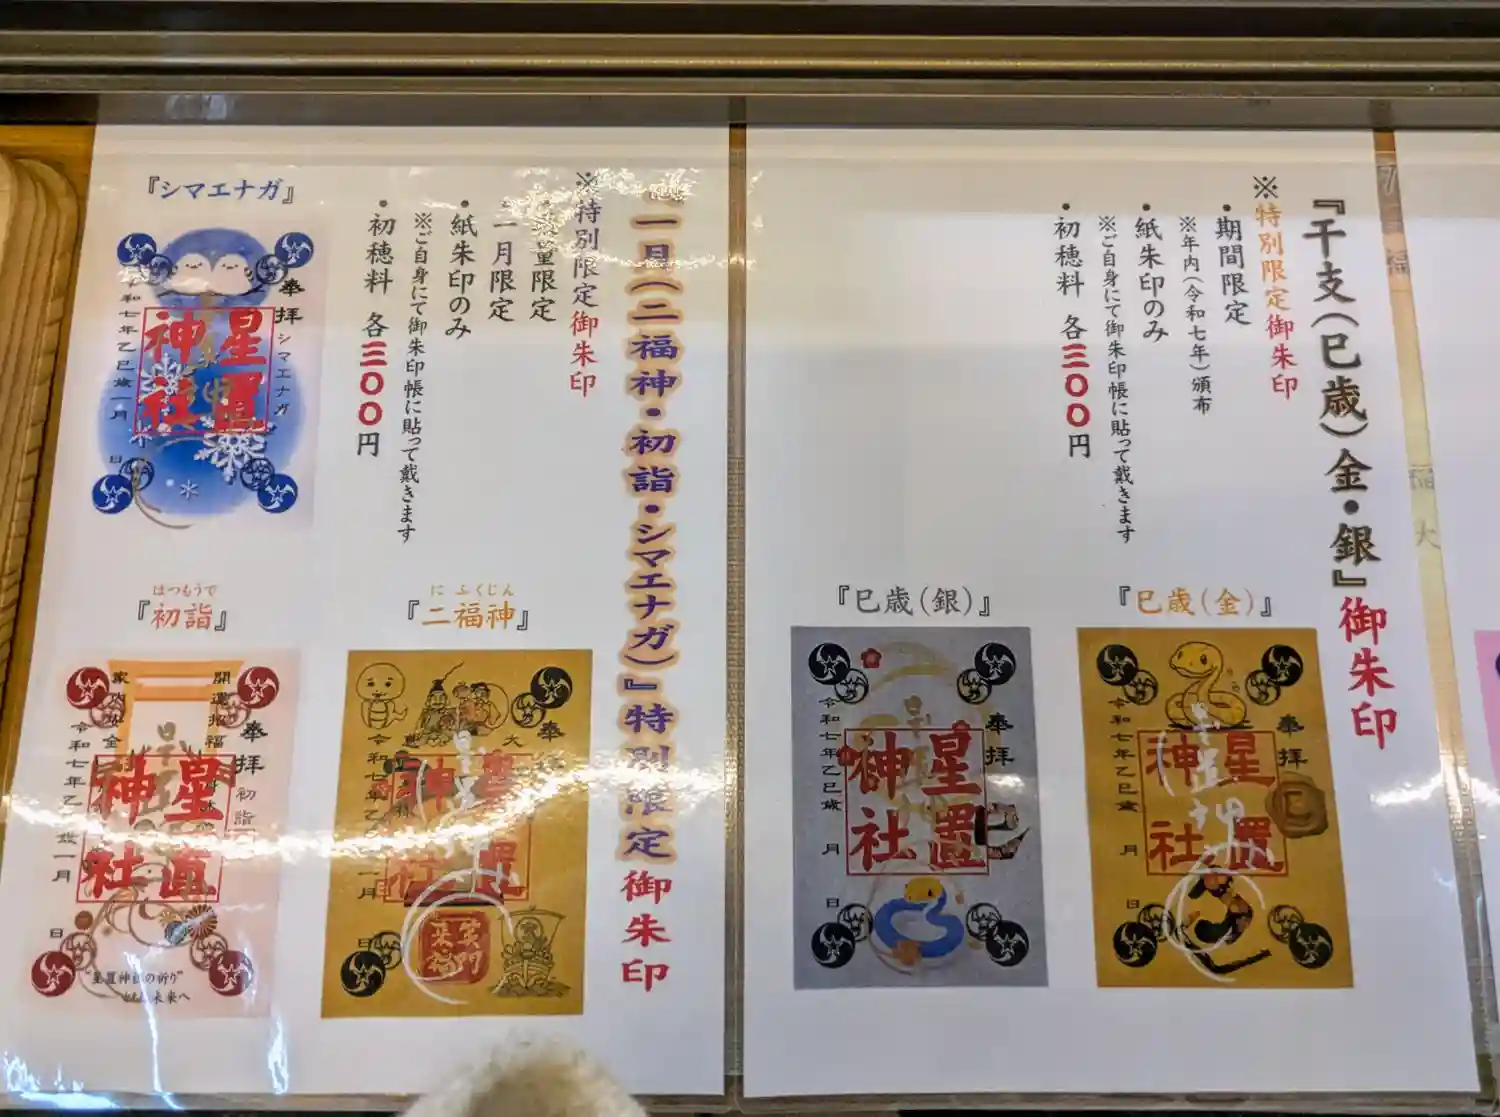 『干支(巳歳)金・銀』御朱印
※特別限定御朱印
・期間限定
※年内(令和七年)頒布
・紙朱印のみ
※ご自身にて御朱印帳に貼って戴きます
・初穂料 各三〇〇円
『巳歳(金)』
奉拝
星置
神社
令和七年乙巳歳 月 日
『巳歳(銀)』
奉拝
星置
神社
令和七年乙巳歳 月 日
一月(二福神・初詣・シマエナガ)』特別限定御朱印
※特別限定御朱印
量限定
一月限定
・紙朱印のみ
※ご自身にて御朱印帳に貼って戴きます
・初穂料 各三〇〇円
『シマエナガ』
奉拝 シマエナガ
星置
神社
令和七年乙巳歳一月 日
にふくじん
『二福神』
奉拝
神社
はつもうで
『初詣』
奉拝 初詣
開運招福
星置
神社
家内安全
日
"星置神社の祈り"
未来へ